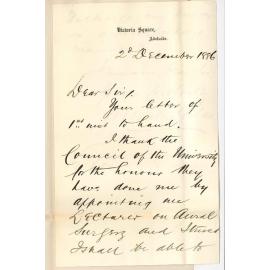 Victoria Square,
Adelaide.
2d December 1886
Dear Sir,
Your letter of
1st inst to hand.
I thank the
Council of the University
for the honour they
have done me by
appointing me
Lecturer on Aural
Surgery and
I shall be able to